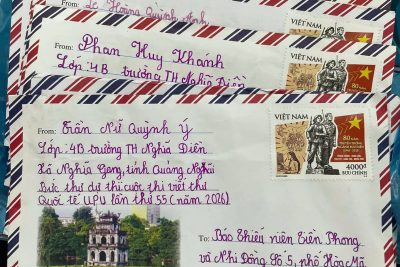 From: Lê Hoàng Quỳnh Anh
VIỆT NAM
From: Phan Huy Khánh
Lớp: 4B trường TH Nghĩa Điền
VIỆT NAM
80 NĂM
From: Trần Nữ Quỳnh Ý
Lớp: 4B trường TH Nghĩa Điền
Xã Nghĩa Giang, tỉnh Quảng Ngãi
Bức thư dự thi cuộc thi viết thư
Quốc tế UPU lần thứ 55 (năm 2026)
VIỆT NAM
80 NĂM
4000đ
BƯU CHÍNH
To: Báo Thiếu niên Tiền Phong
và Nhi Đồng Số 5, phố Hòa Mã